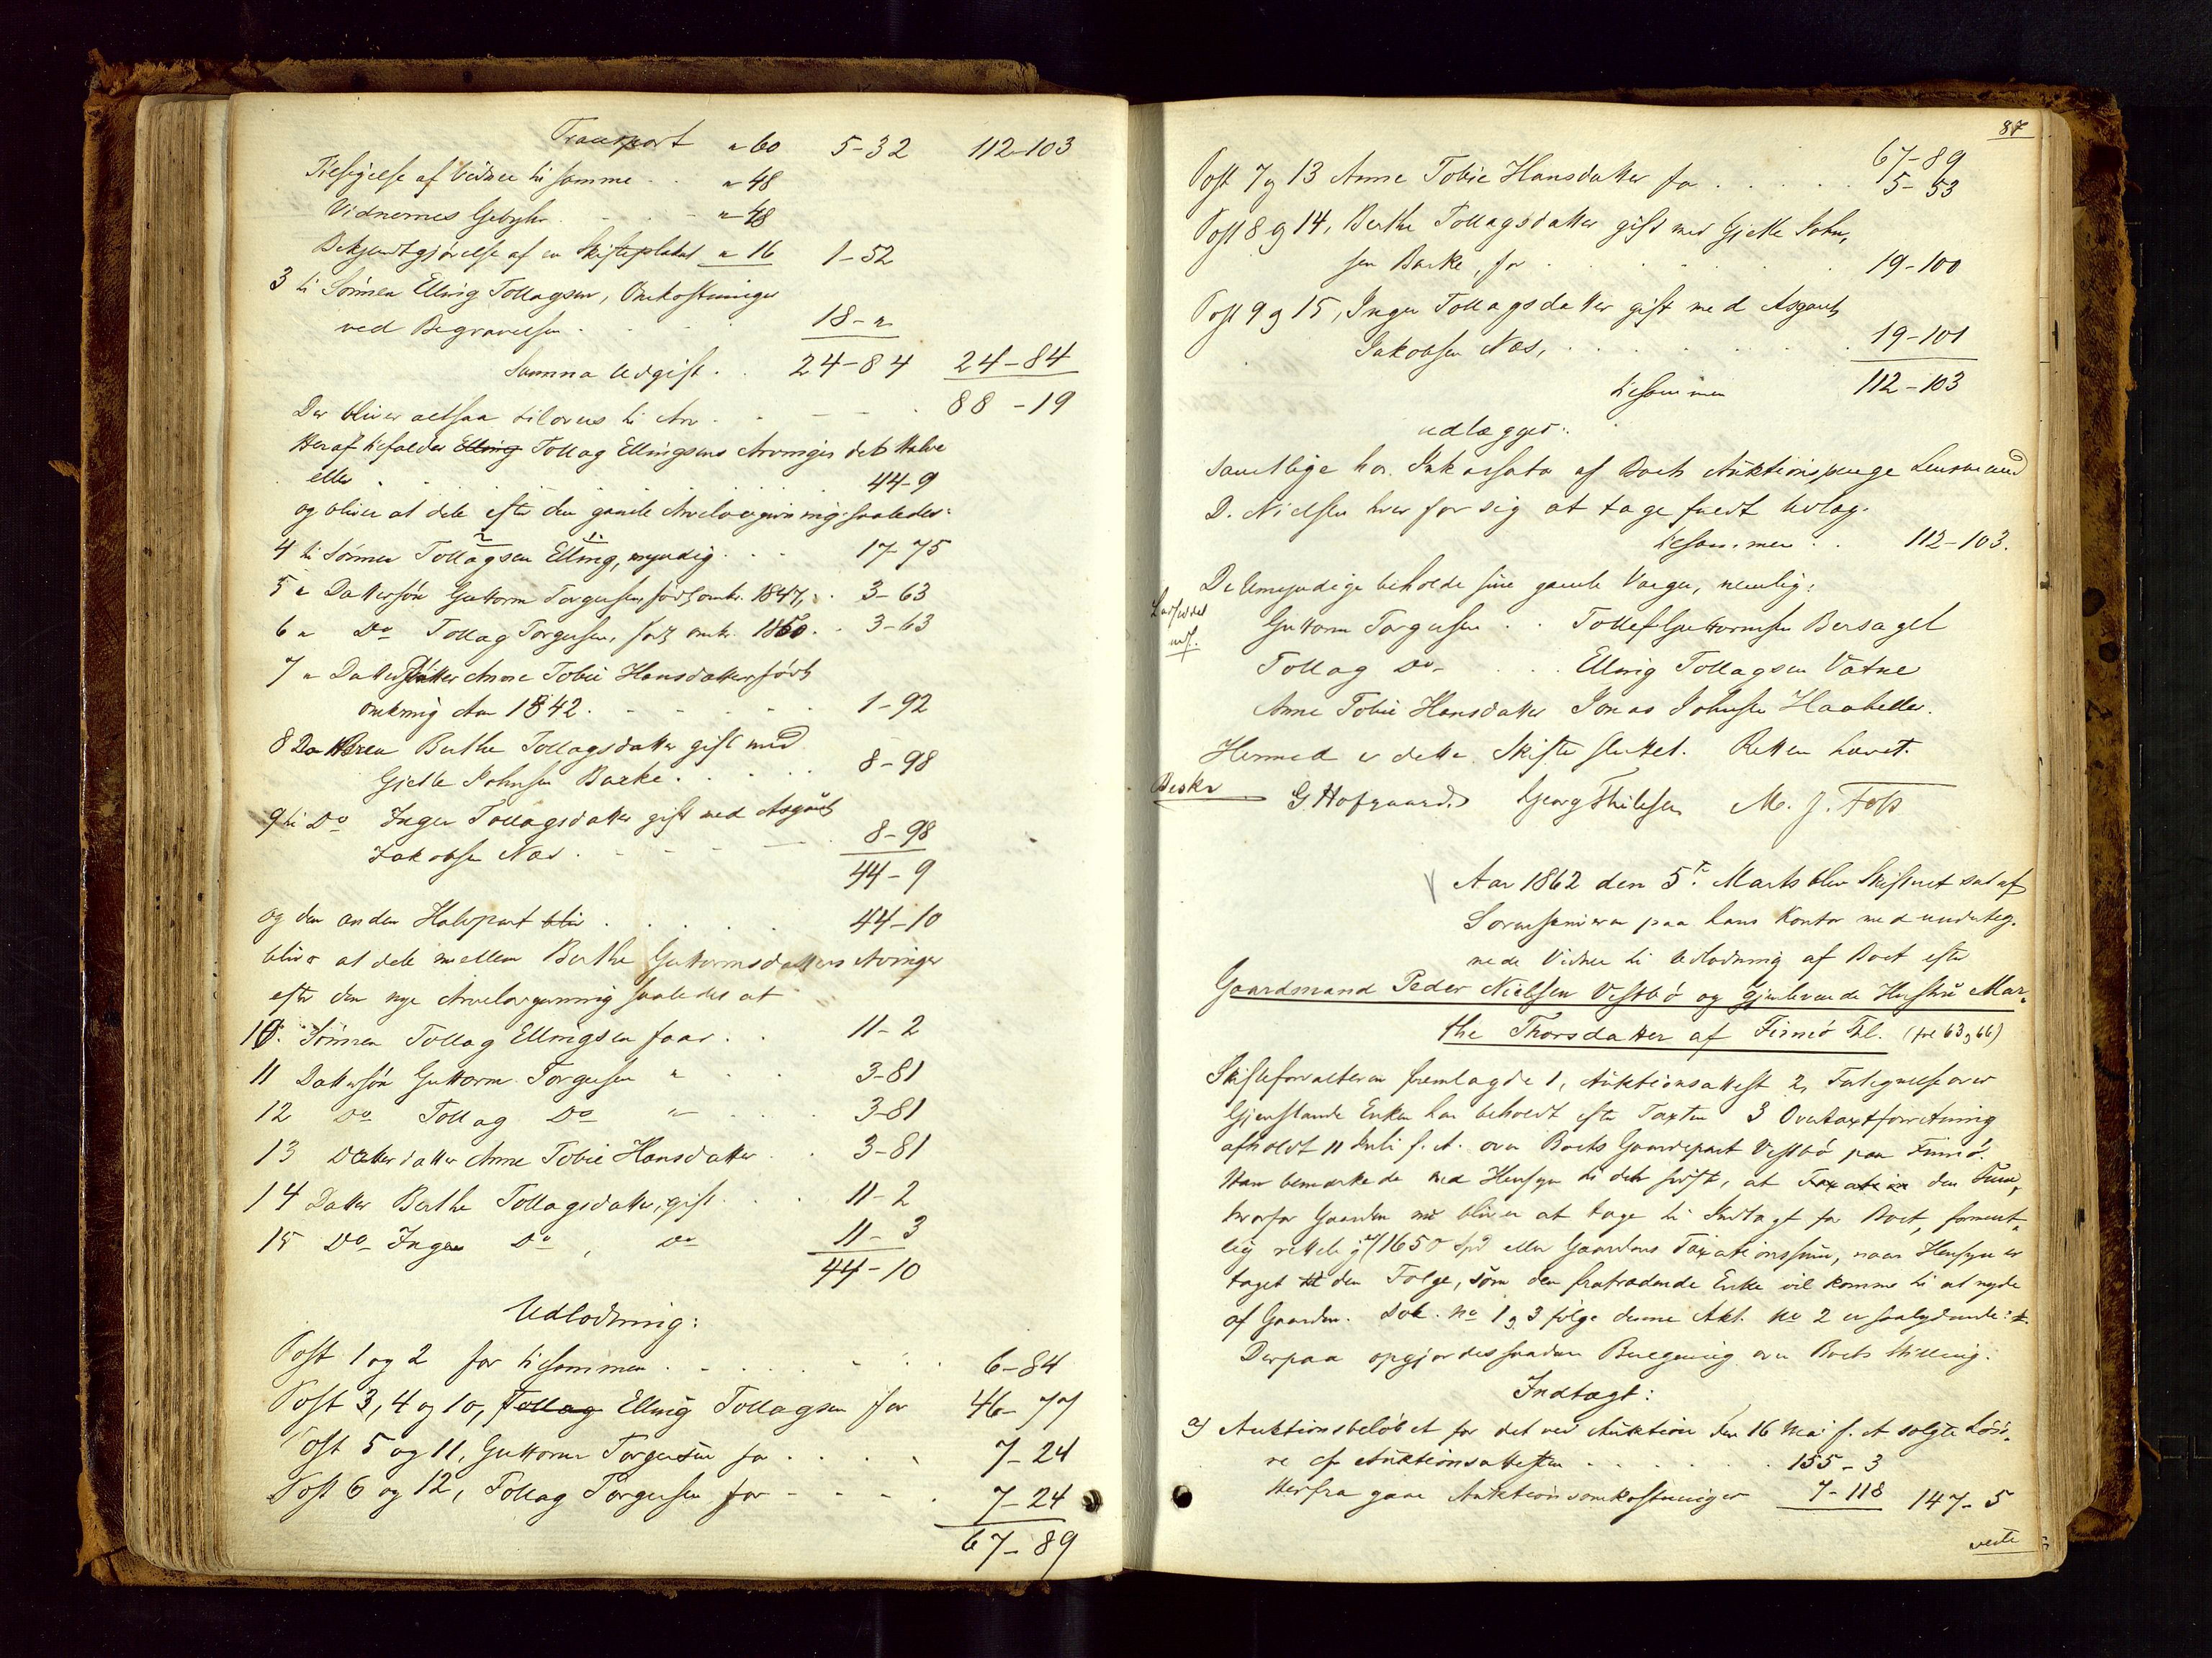 Transport " 60 5-32 112-103
Tilsigelse af Vidner til samme . . " 48
Vidnernes Gebyhr . . . " 48
Bekjendtgjørelse af en Skifteplakat " 16 1-52
3 til Sønnen Elling Tollagsen, Omkostninger
ved Begravelsen . . . 18-"
Summa Udgift . . 24-84 24-84
Der bliver altsaa tilovers til Arv . . . 88-19
Heraf tilfalder Elling Tollag Ellingsens Arvinger det Halve
eller . . . 44-9
og bliver at dele efter den gamle Arvelovgivning saaledes:
4 til Sønnen Tollagsen Elling, myndig . . . 17-75
5 " Dattersøn Guttorm Torgersen, født omkr. 1847, . . 3-63
6 " Do Tollag Torgersen, født omkr. 1850 . . 3-63
7 " Datterdatter Anne Tobie Hansdatter, født
omkring Aar 1842 . . . 1-92
8 Datteren Berthe Tollagsdatter gift med
Gjetle Johnsen Barke . . . 8-98
9 til Do Inger Tollagsdatter gift med Asgaut
Jakobsen Næs . . . 8-98
44-9
og den anden Halvpart bliv . . . 44-10
bliver at dele mellem Berthe Guttormsdatters Arvinger
efter den nye Arvelovgivning saaledes at
10. Sønnen Tollag Ellingsen faar . . 11-2
11 Dattersøn Guttorm Torgersen " . . 3-81
12 Do Tollag Do " . . 3-81
13 Datterdatter Anne Tobie Hansdatter . . 3-81
14 Datter Berthe Tollagsdatter, gift . . 11-2
15 Do Inger Do , Do 11-3
44-10
Udlodning:
Post 1 og 2 for tilsammen . . . 6-84
Post 3, 4 og 10, Tollag Elling Tollagsen for 46-77
Post 5 og 11, Guttorm Torgersen for . . . 7-24
Post 6 og 12, Tollag Torgersen for . . . 7-24
67-89
87
67-89
Post 7 og 13 Anne Tobie Hansdatter for . . . 5-53
Post 8 og 14, Berthe Tollagsdatter gift med Gjetle John-
sen Barke, for . . . 19-100
Post 9 og 15, Inger Tollagsdatter gift med Asgaut
Jakobsen Næs, . . . 19-101
tilsammen 112-103
udlægges:
samtlige hos Inkassator af Boets Auktionspenge Lensmand
D. Nielsen hver for sig at tage fuldt Udlag.
tilsammen . . 112-103.
De Umyndige beholde sine gamle Værger, nemlig:
Guttorm Torgersen . . Tollef Guttormsen Bersagel
Tollag Do . . Elling Tollagsen Vatne
Anne Tobie Hansdatter Jonas Johnsen Haaheller.
Hermed er dette Skifte sluttet. Retten hævet.
Beskr G Hofgaard. Georg Thilesen M. J. Foss
Aar 1862 den 5te Marts blev Skifteret sat af
Sorenskriveren paa hans Kontor med underteg-
nede Vidner til Udlodning af Boet efter
Gaardmand Peder Nielsen Vestbø og gjenlevende Hustru Mar-
the Thorsdatter af Finnø Thl. (fre 63 og 66)
Skifteforvalteren fremlagde 1, Auktionsattest 2, Fortegnelse over
Gjenstande Enken har beholdt efter Taxten 3 Overtaxtforretning
afholdt 11 Juli f. A. over Boets Gaardepart Vestbø paa Finnø.
Han bemærkede med Hensyn til det sidste, at Taxation den Sum,
hvorfor Gaarden nu bliver at tage til Indtægt for Boet, forment-
lig rettelig er 1650 Spd eller Gaardens Taxationssum, naar Hensyn er
taget til den Følge, som den fratrædende Enke vil komme til at nyde
af Gaarden. Dok. No 1 og 3 følge denne Akt. No 2 er saalydende:
Derpaa opgjordes saadan Beregning over Boets Stilling.
Indtægt:
a) Auktionsbeløbet for det ved Auktion den 16 Mai f. A solgte Løsø-
re cf. Auktionsattesten . . . 155-3
Herfra gaar Auktionsomkostninger 7-118 147-5